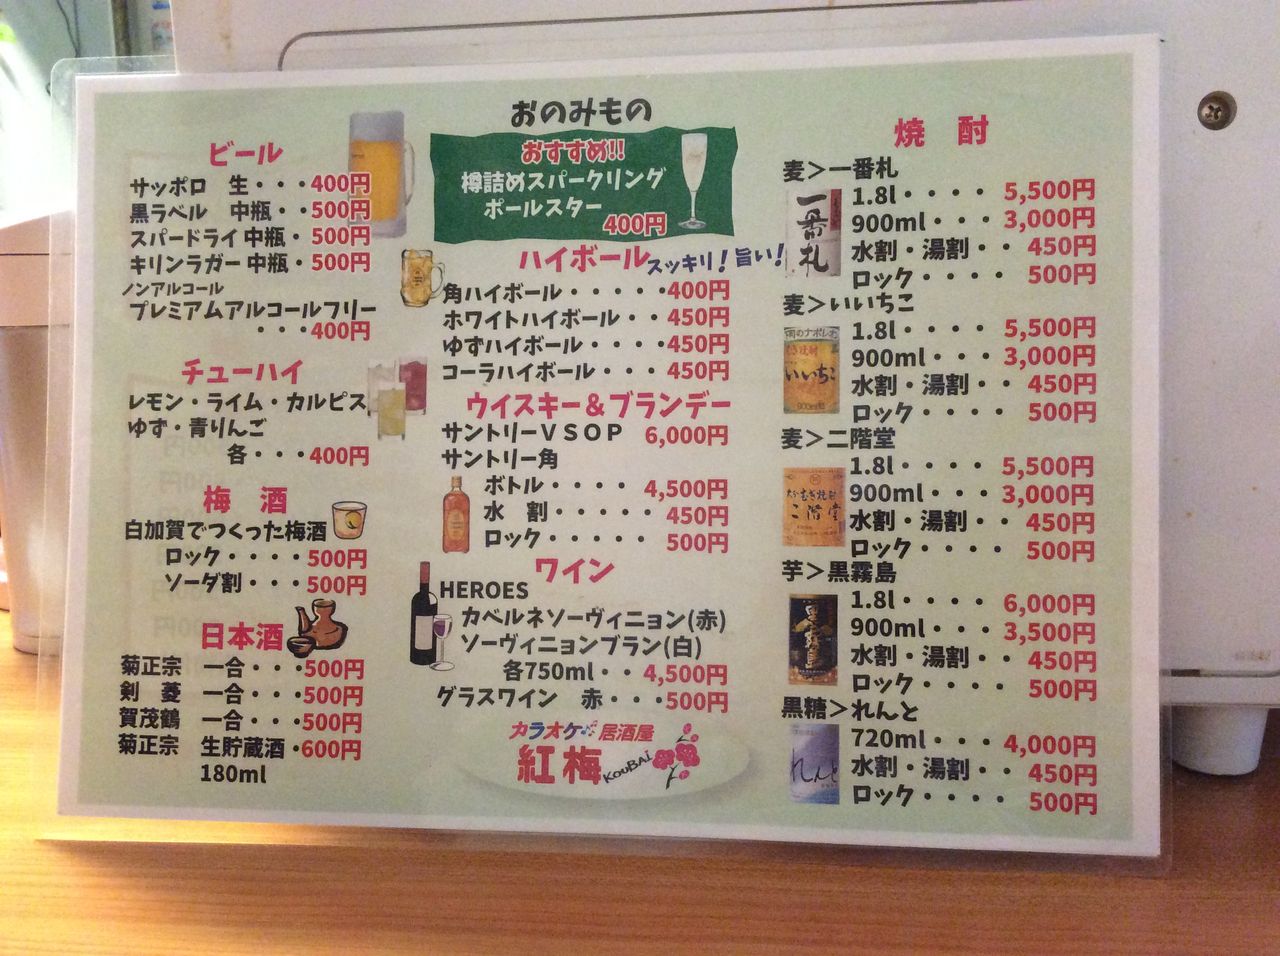 おのみもの
ビール
サッポロ 生・・・400円
黒ラベル 中瓶・・500円
スパードライ 中瓶・500円
キリンラガー 中瓶・500円
ノンアルコール
プレミアムアルコールフリー
・・・400円
チューハイ
レモン・ライム・カルピス
ゆず・青りんご
各・・・400円
梅 酒
白加賀でつくった梅酒
ロック・・・・500円
ソーダ割・・・500円
日本酒
菊正宗 一合・・・500円
剣 菱 一合・・・500円
賀茂鶴 一合・・・500円
菊正宗 生貯蔵酒・600円
180ml
おすすめ!!
樽詰めスパークリング
ポールスター
400円
ハイボール スッキリ!旨い!
角ハイボール・・・・・400円
ホワイトハイボール・・450円
ゆずハイボール・・・・450円
コーラハイボール・・・450円
ウイスキー&ブランデー
サントリーVSOP 6,000円
サントリー角
ボトル・・・・4,500円
水 割・・・・・450円
ロック・・・・・500円
ワイン
HEROES
カベルネソーヴィニョン(赤)
ソーヴィニョンブラン(白)
各750ml・・4,500円
グラスワイン 赤・・500円
カラオケ 居酒屋
紅梅 KouBAi
焼 酎
麦>一番札
一番札
1.8l・・・・5,500円
900ml・・・3,000円
水割・湯割・・450円
ロック・・・・500円
麦>いいちこ
いいちこ
1.8l・・・・5,500円
900ml・・・3,000円
水割・湯割・・450円
ロック・・・・500円
麦>二階堂
二階堂
1.8l・・・・5,500円
900ml・・・3,000円
水割・湯割・・450円
ロック・・・・500円
芋>黒霧島
黒霧島
1.8l・・・・6,000円
900ml・・・3,500円
水割・湯割・・450円
ロック・・・・500円
黒糖>れんと
れんと
720ml・・・4,000円
水割・湯割・・450円
ロック・・・・500円